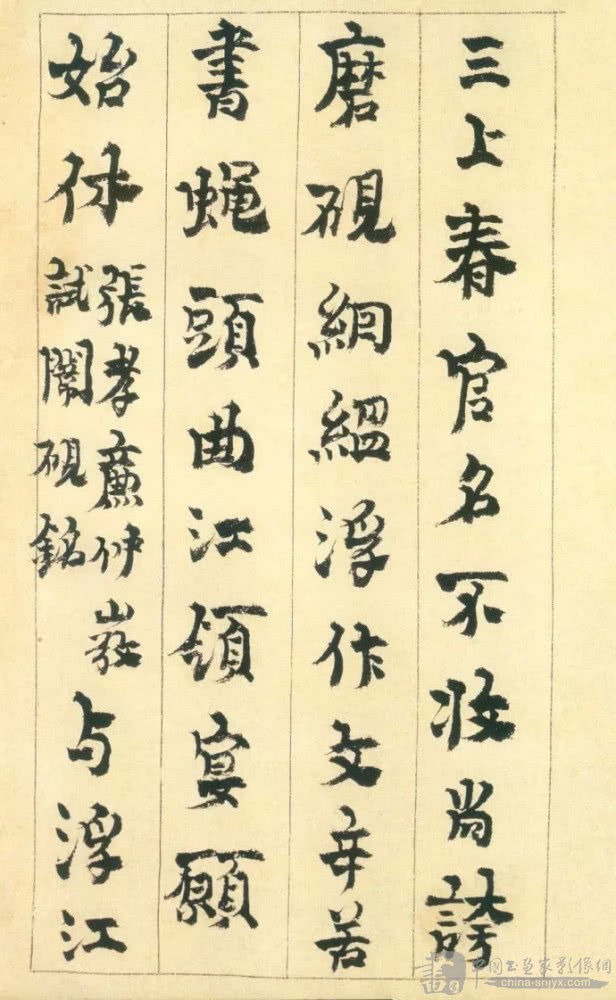 三上春官名不收尚誇
磨硯絪縕浮作文辛苦
書蠅頭曲江領宴願
始休
張孝廉仲巖
試闈硯銘
与浮江
中国书画家影像網
china-snjyx.com